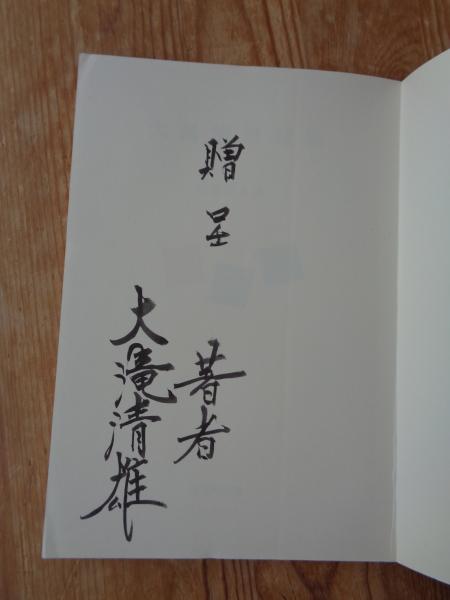 贈呈
著者
大滝清雄